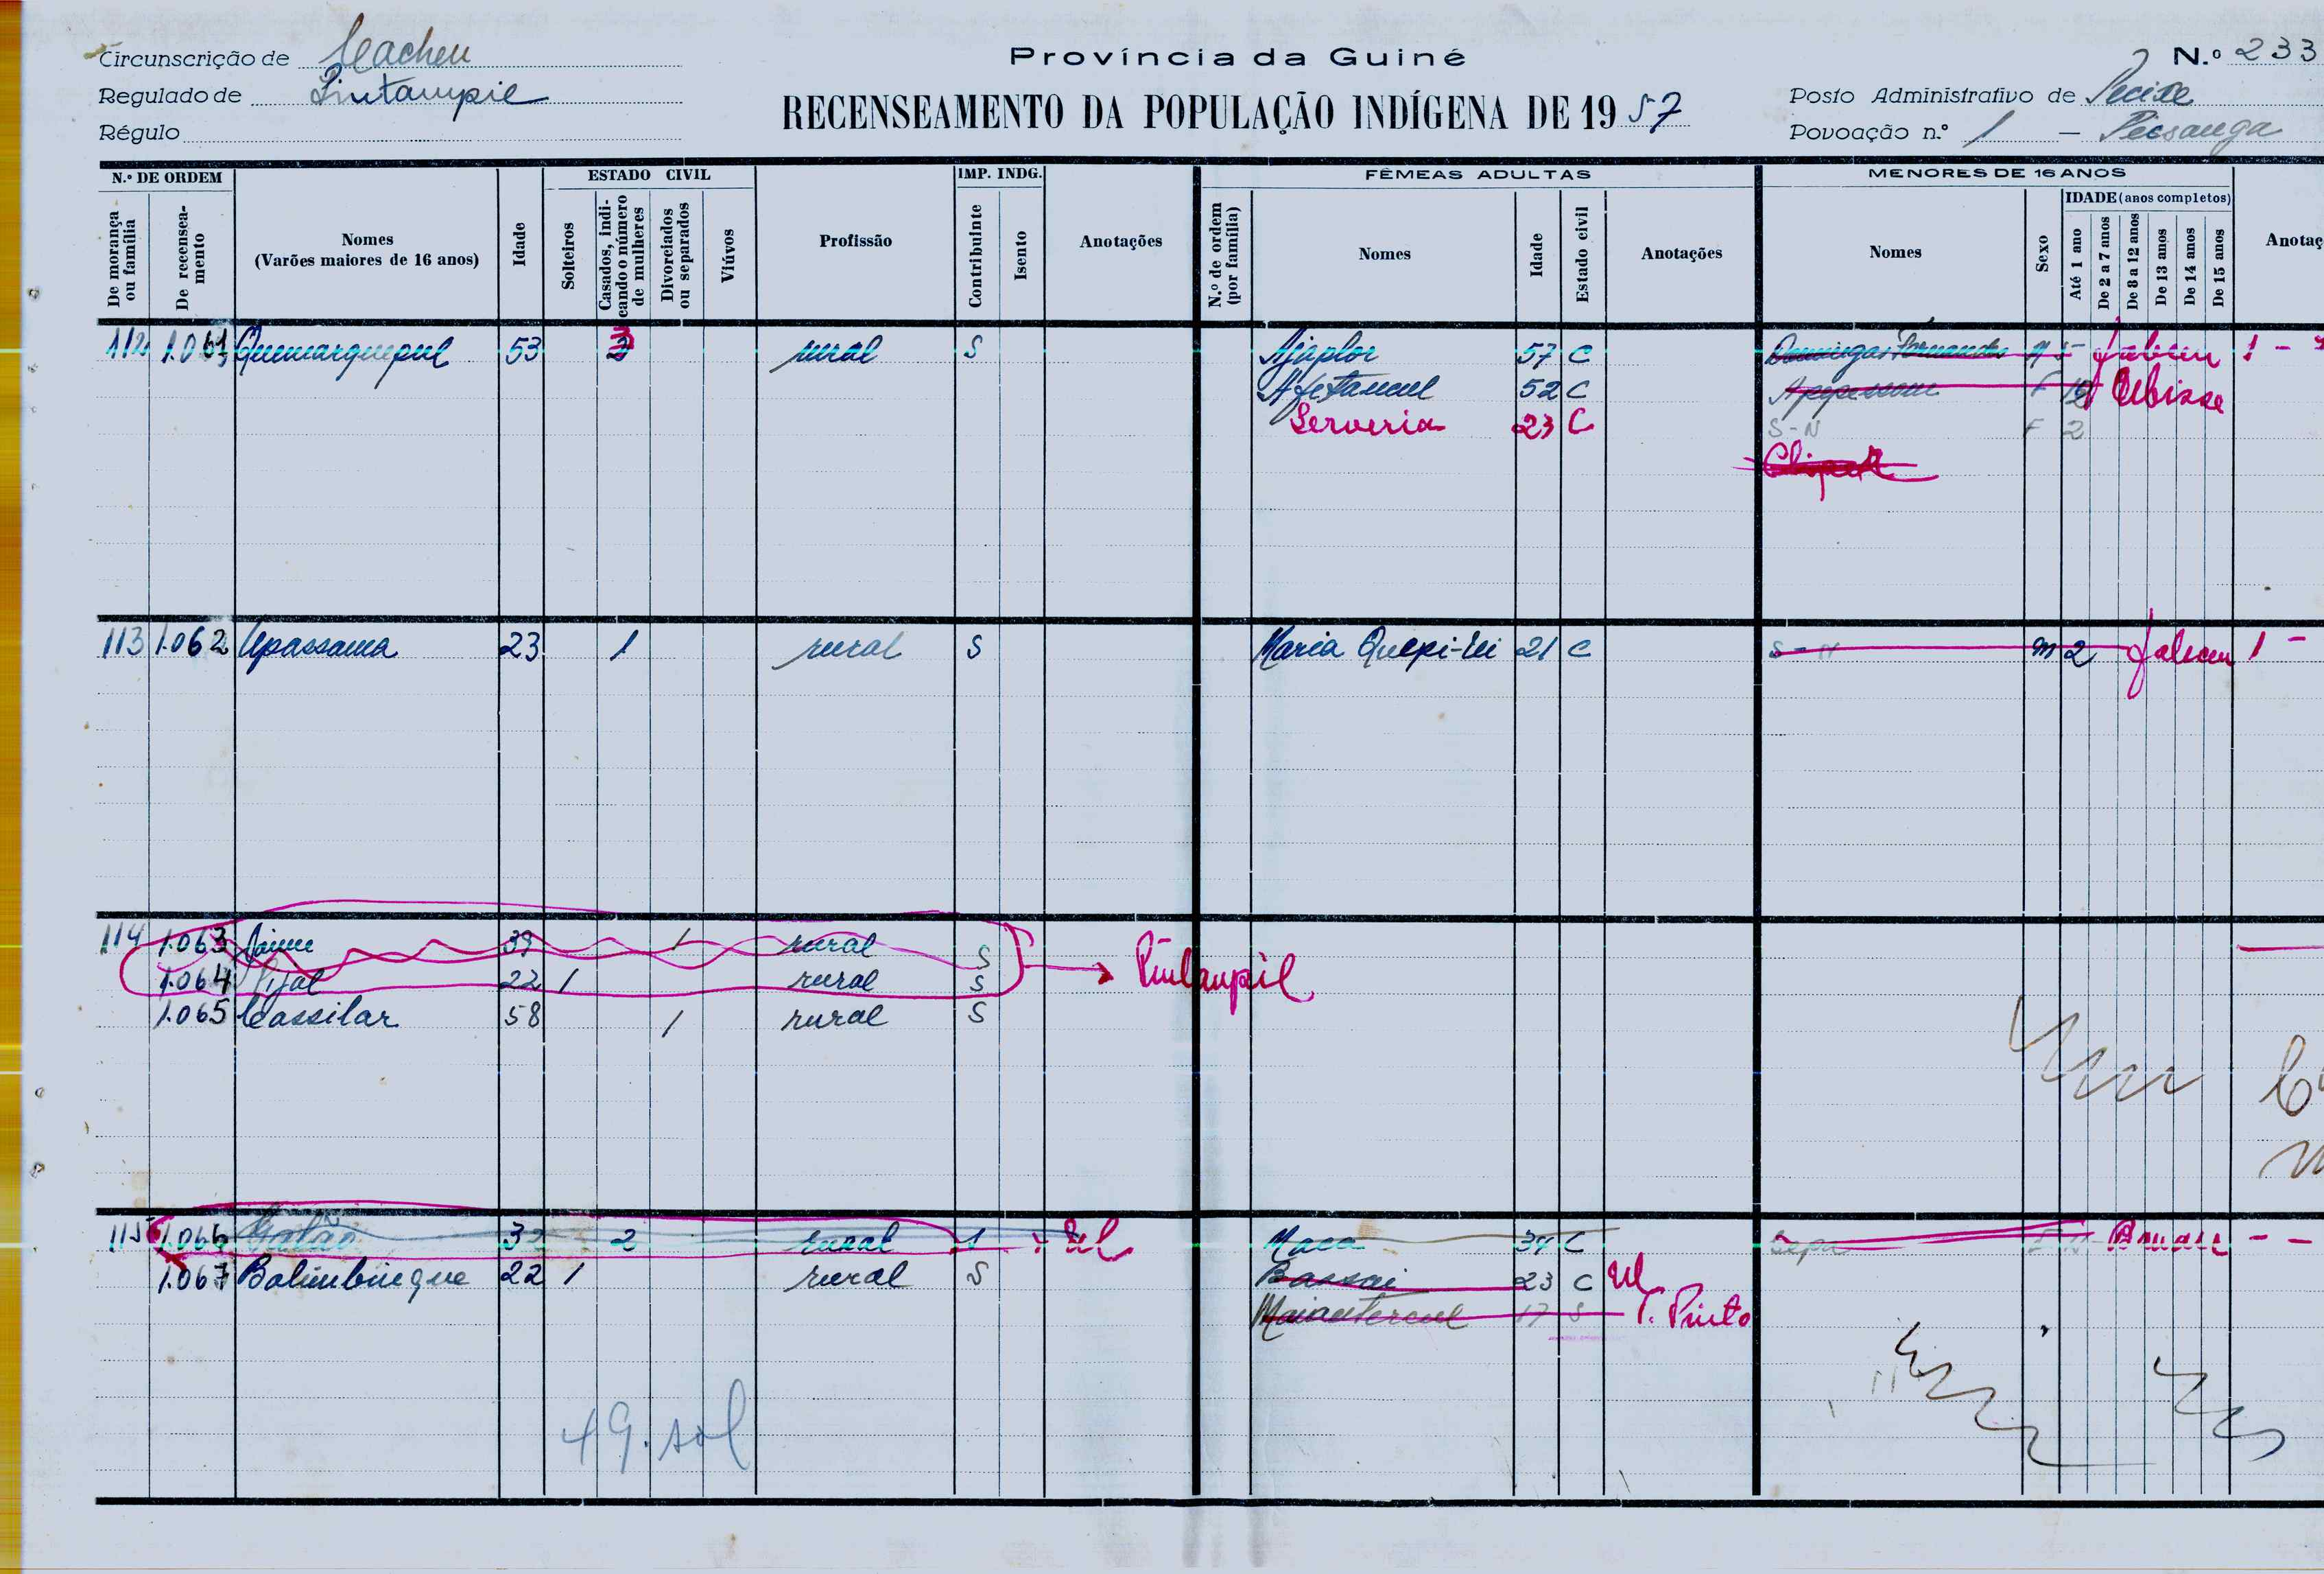 Circunscrição de Cacheu
Regulado de Pintampil
Régulo
Província da Guiné
RECENSEAMENTO DA POPULAÇÃO INDÍGENA DE 1957
N.º 233
Posto Administrativo de Pecixe
Povoação n.º 1 –
N.º DE ORDEM
De morança ou família
De recenseamento
Nomes
(Varões maiores de 16 anos)
Idade
ESTADO CIVIL
Solteiros
Casados, indicando o número de mulheres
Divorciados ou separados
Viúvos
Profissão
IMP. INDG.
Contribuinte
Isento
Anotações
FÊMEAS ADULTAS
N.º de ordem (por família)
Nomes
Idade
Estado civil
Anotações
MENORES DE 16 ANOS
Nomes
Sexo
IDADE (anos completos)
Até 1 ano
De 2 a 7 anos
De 8 a 12 anos
De 13 anos
De 14 anos
De 15 anos
Anotaç
112 1.061 Quemarquepul 53 rural S Ajaplor 57 C Domingas Fernandes faleceu 1 -
52 C F
23 C S-N F 2
113 1.062 Upassama 23 1 rural S Maria 21 C S-N M 2 faleceu 1 -
114 1.063 Jaime 39 1 rural S
1.064 22 1 rural S Pintampil
1.065 Cassilar 58 1 rural S
115 1.066 32 2 rural S Ul Maca 34 C
1.067 Balimbingue 22 1 rural S Bassai 23 C Ul
17 S T. Pinto
49. sol